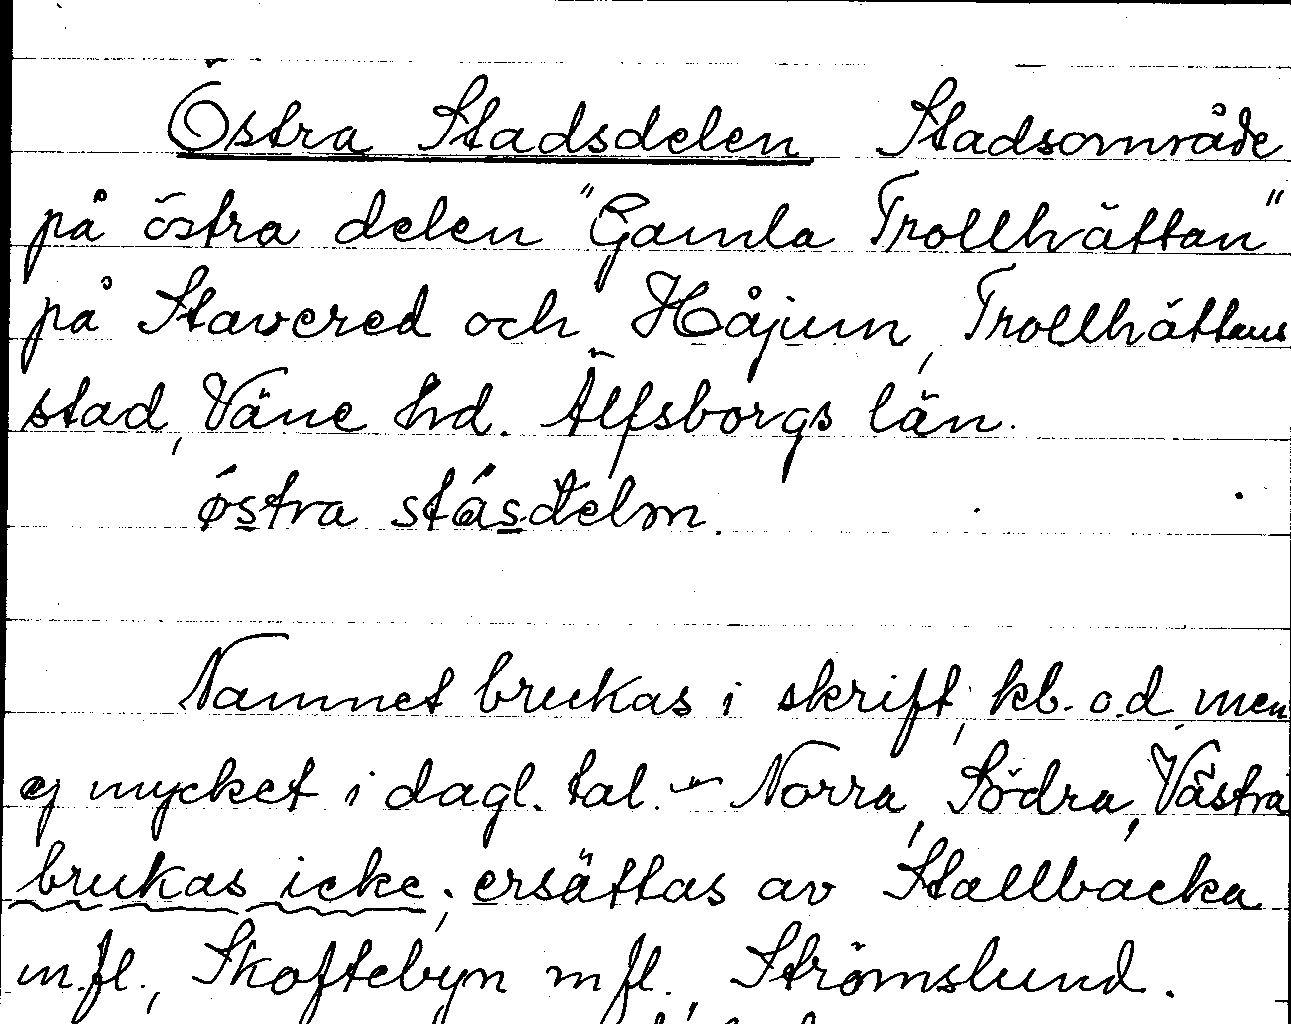 Östra Stadsdelen Stadsområde
på östra delen "Gamla Trollhättan"
på Stavered och Håjum, Trollhättans
stad, Väne hd. Älfsborgs län.
ǿstra stásdelm.
Namnet brukas i skrift, kb. o.d. men
ej mycket i dagl. tal. – Norra, Södra, Västra
brukas icke; ersättas av Stallbacka
m.fl., Skoftebyn m fl., Strömslund.